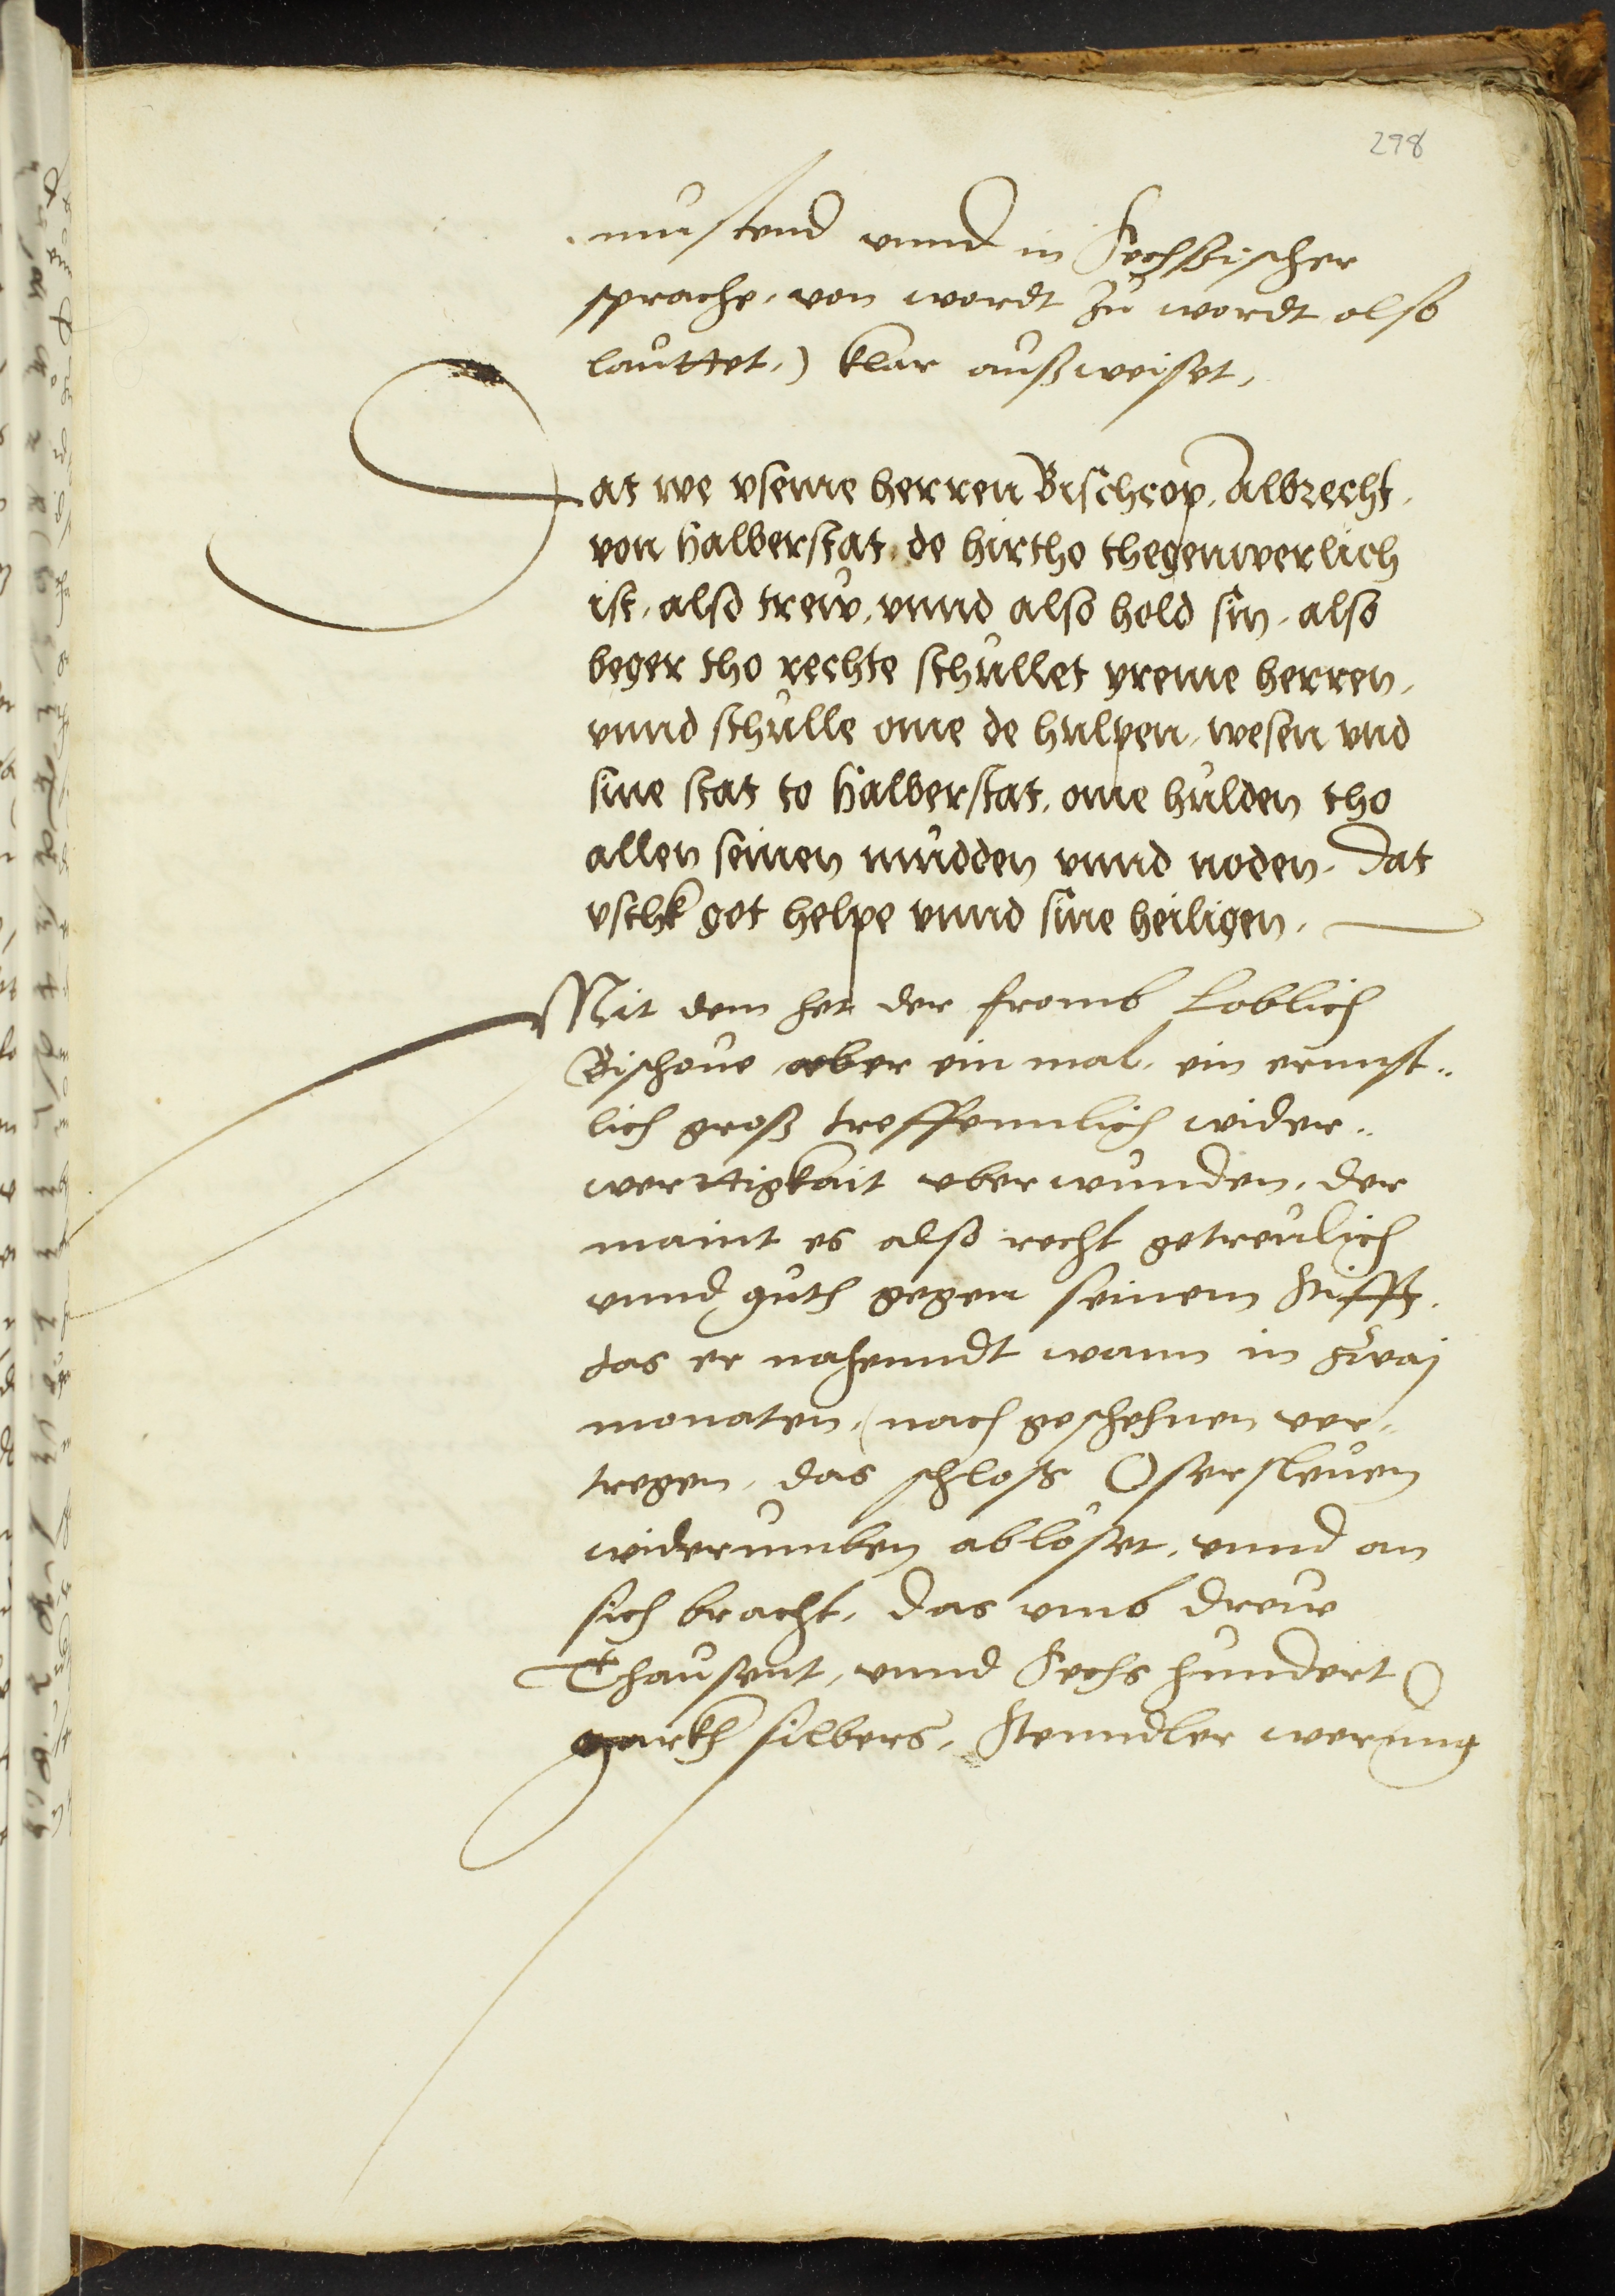 298
mustend vnnd in Sechsischer
sprache, von wordt zu wordt also
lauttet,) klar außweiset,
Dat we vseme herren Bischcop, Albrecht,
von Halberstat, de hirtho thegenwerlich
ist, also trew, vnnd also hold sin, also
beger tho rechte schullet yreme herren,
vnnd schulle ome de hulpen, wesen vnd
sine stat to Halberstat, ome hulden tho
allen seinen nudden vnnd noden, Dat
vschk got helpe vnnd sine heiligen,
Mit dem het der fromb Loblich
Bischoue aber ein mal, ein ernnst-
lich groß treffennlich wider-
werttigkait vberwunden, der
maint es alß recht getreulich
vnnd guth gegen seinem Stifft,
das er nahenndt wann in zwaj
monaten, (nach geschehnen ver-
tregen, das schloß Osersleuen
widerumben abloset, vnnd an
sich bracht, das vmb drew
Thausent, vnnd Sechs hundert
markh silbers, Stenndler werung